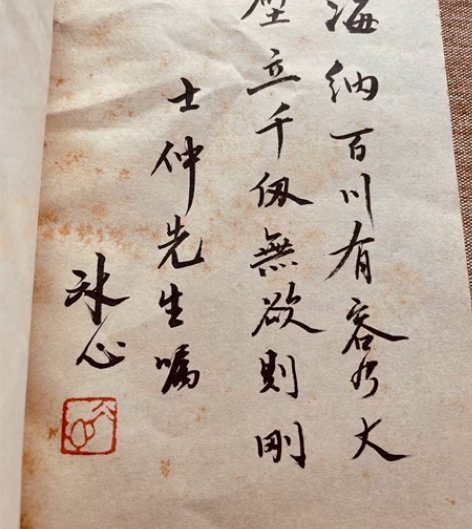 海纳百川有容乃大
壁立千仭無欲則剛
士仲先生嘱
冰心